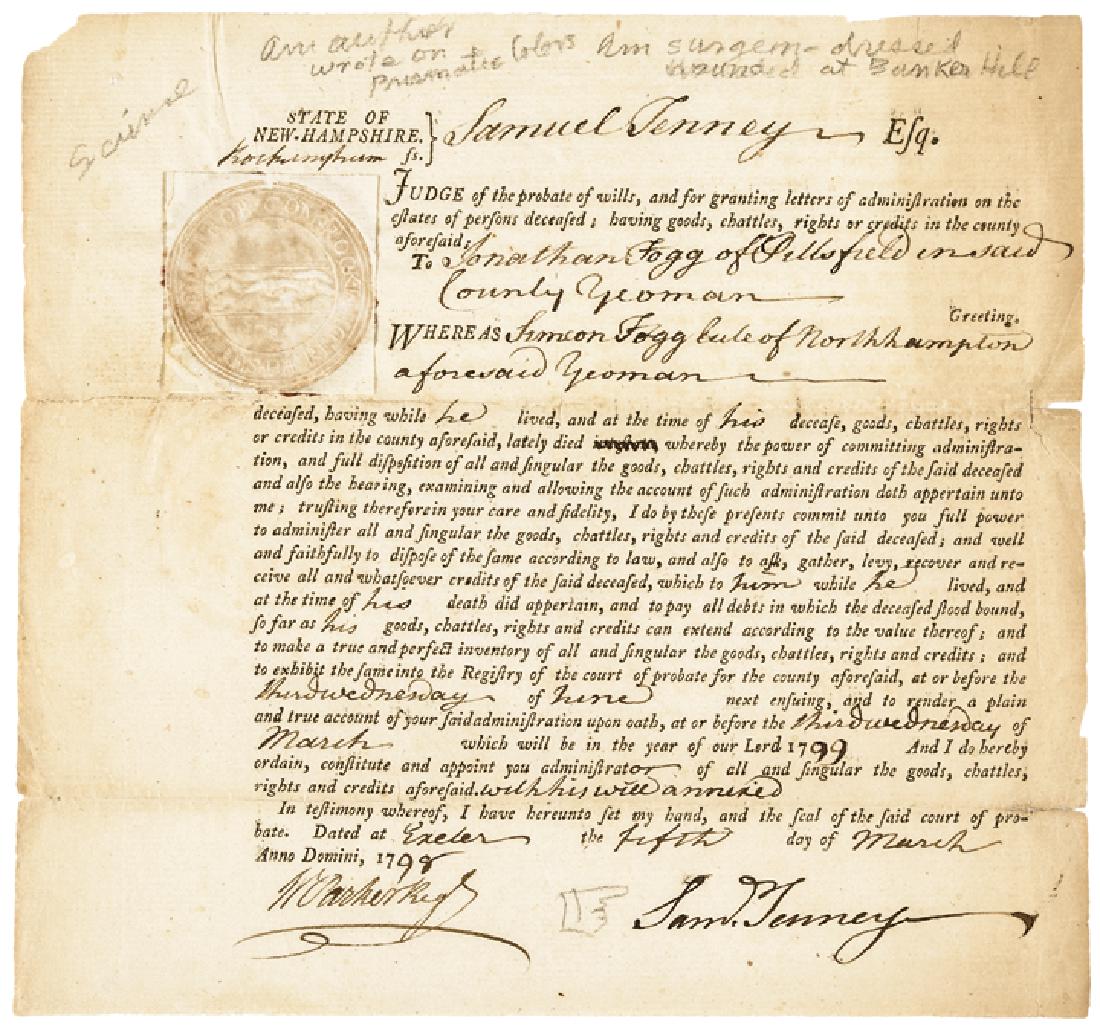 Am author
wrote on
Prismatic Colors
Am surgeon - dressed
wounded at Bunker Hill
Science
STATE OF
NEW-HAMPSHIRE.
Rockingham ſs.
Samuel Tenney Eſq.
JUDGE of the probate of wills, and for granting letters of adminiſtration on the
eſtates of perſons deceaſed; having goods, chattles, rights or credits in the county
aforeſaid;
To Jonathan Fogg of Pittsfield in said
County Yeoman
Greeting.
WHEREAS Simeon Fogg late of Northhampton
aforesaid Yeoman
deceaſed, having while he lived, and at the time of his deceaſe, goods, chattles, rights
or credits in the county aforeſaid, lately died whereby the power of committing adminiſtra-
tion, and full diſpoſition of all and ſingular the goods, chattles, rights and credits of the ſaid deceaſed
and alſo the hearing, examining and allowing the account of ſuch adminiſtration doth appertain unto
me; truſting therefore in your care and fidelity, I do by theſe preſents commit unto you full power
to adminiſter all and ſingular the goods, chattles, rights and credits of the ſaid deceaſed; and well
and faithfully to diſpoſe of the ſame according to law, and alſo to aſk, gather, levy, recover and re-
ceive all and whatſoever credits of the ſaid deceaſed, which to him while he lived, and
at the time of his death did appertain, and to pay all debts in which the deceaſed ſtood bound,
ſo far as his goods, chattles, rights and credits can extend according to the value thereof; and
to make a true and perfect inventory of all and ſingular the goods, chattles, rights and credits; and
to exhibit the ſame into the Regiſtry of the court of probate for the county aforeſaid, at or before the
third wednesday of June next enſuing, and to render a plain
and true account of your ſaid adminiſtration upon oath, at or before the third wednesday of
March which will be in the year of our Lord 1799 And I do hereby
ordain, conſtitute and appoint you adminiſtrator of all and ſingular the goods, chattles,
rights and credits aforeſaid. with his will annexed
In teſtimony whereof, I have hereunto ſet my hand, and the ſeal of the ſaid court of pro-
bate. Dated at Exeter the fifth day of March
Anno Domini, 1798
W Parker Regr
Samł. Tenney